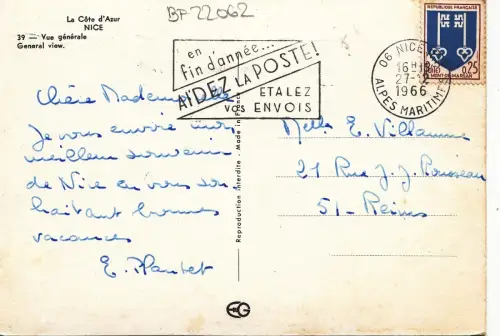 La Côte d'Azur
NICE
39 — Vue générale
General view.
BF 22062
en
fin d'année...
AIDEZ LA POSTE!
ETALEZ
VOS ENVOIS
06 NICE
16H
27-12
1966
ALPES MARITIMES
REPUBLIQUE FRANCAISE
0,25
POSTES
MONT-DE-MARSAN
Chère Mademoiselle
Je vous envoie mon
meilleur souvenir
de Nice en vous sou
haitant bonnes
vacances
E. Plantet
Reproduction Interdite - Made in France
Melle E. Villaume
21 Rue J. J. Rousseau
51 - Reims